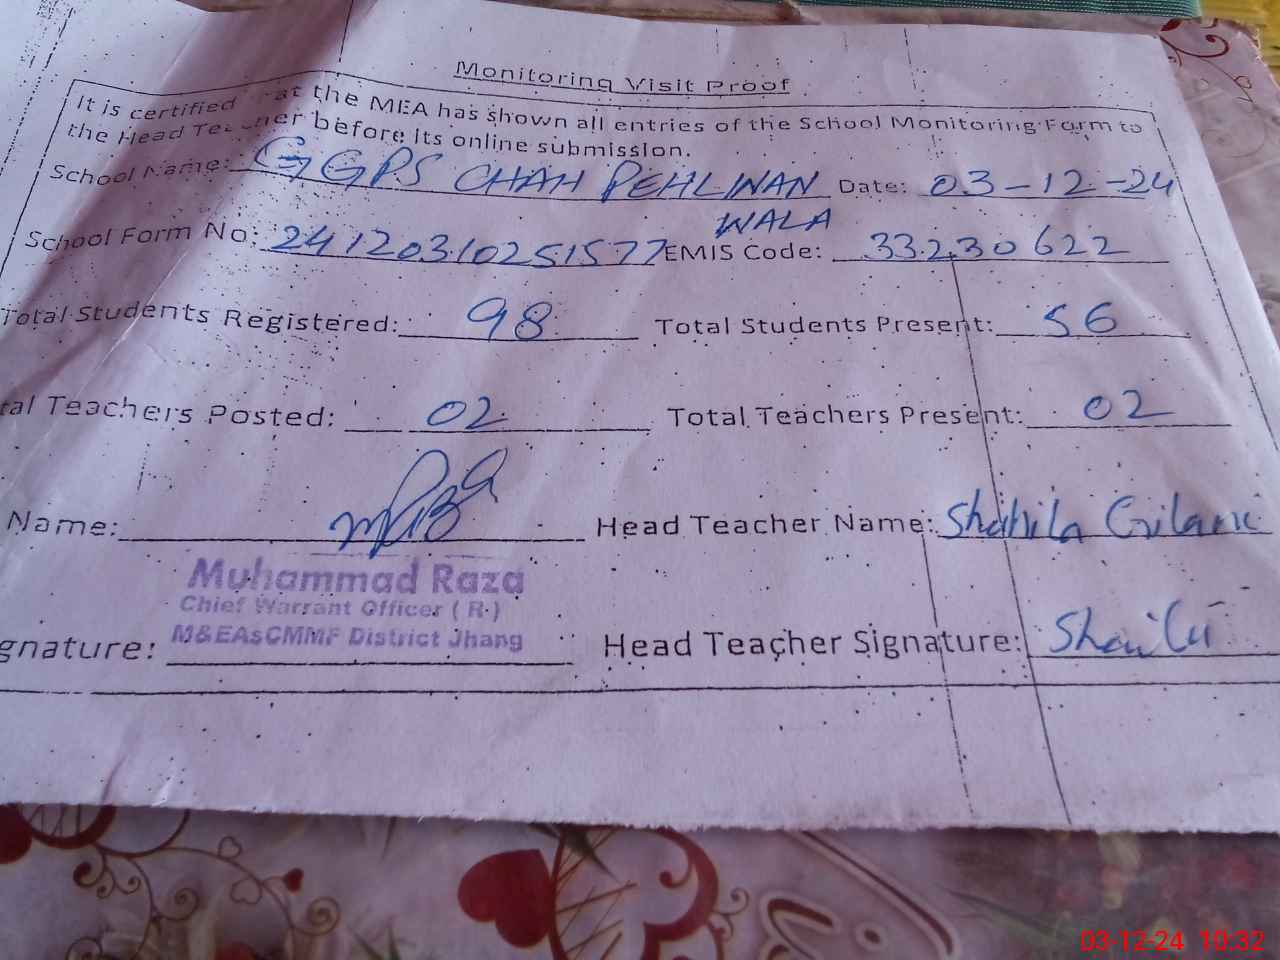 Monitoring Visit Proof
It is certified at the MEA has shown all entries of the School Monitoring Form to
the Head Teacher before its online submission.
School Name: GGPS CHAH PEHLWAN WALA Date: 03-12-24
School Form No: 24120310251577 EMIS Code: 33230622
Total Students Registered: 98 Total Students Present: 56
tal Teachers Posted: 02 Total Teachers Present: 02
Name: MRaza Head Teacher Name: Shahila Gilani
Muhammad Raza
Chief Warrant Officer (R)
M&EAsCMMF District Jhang
gnature: Head Teacher Signature:
03-12-24 10:32